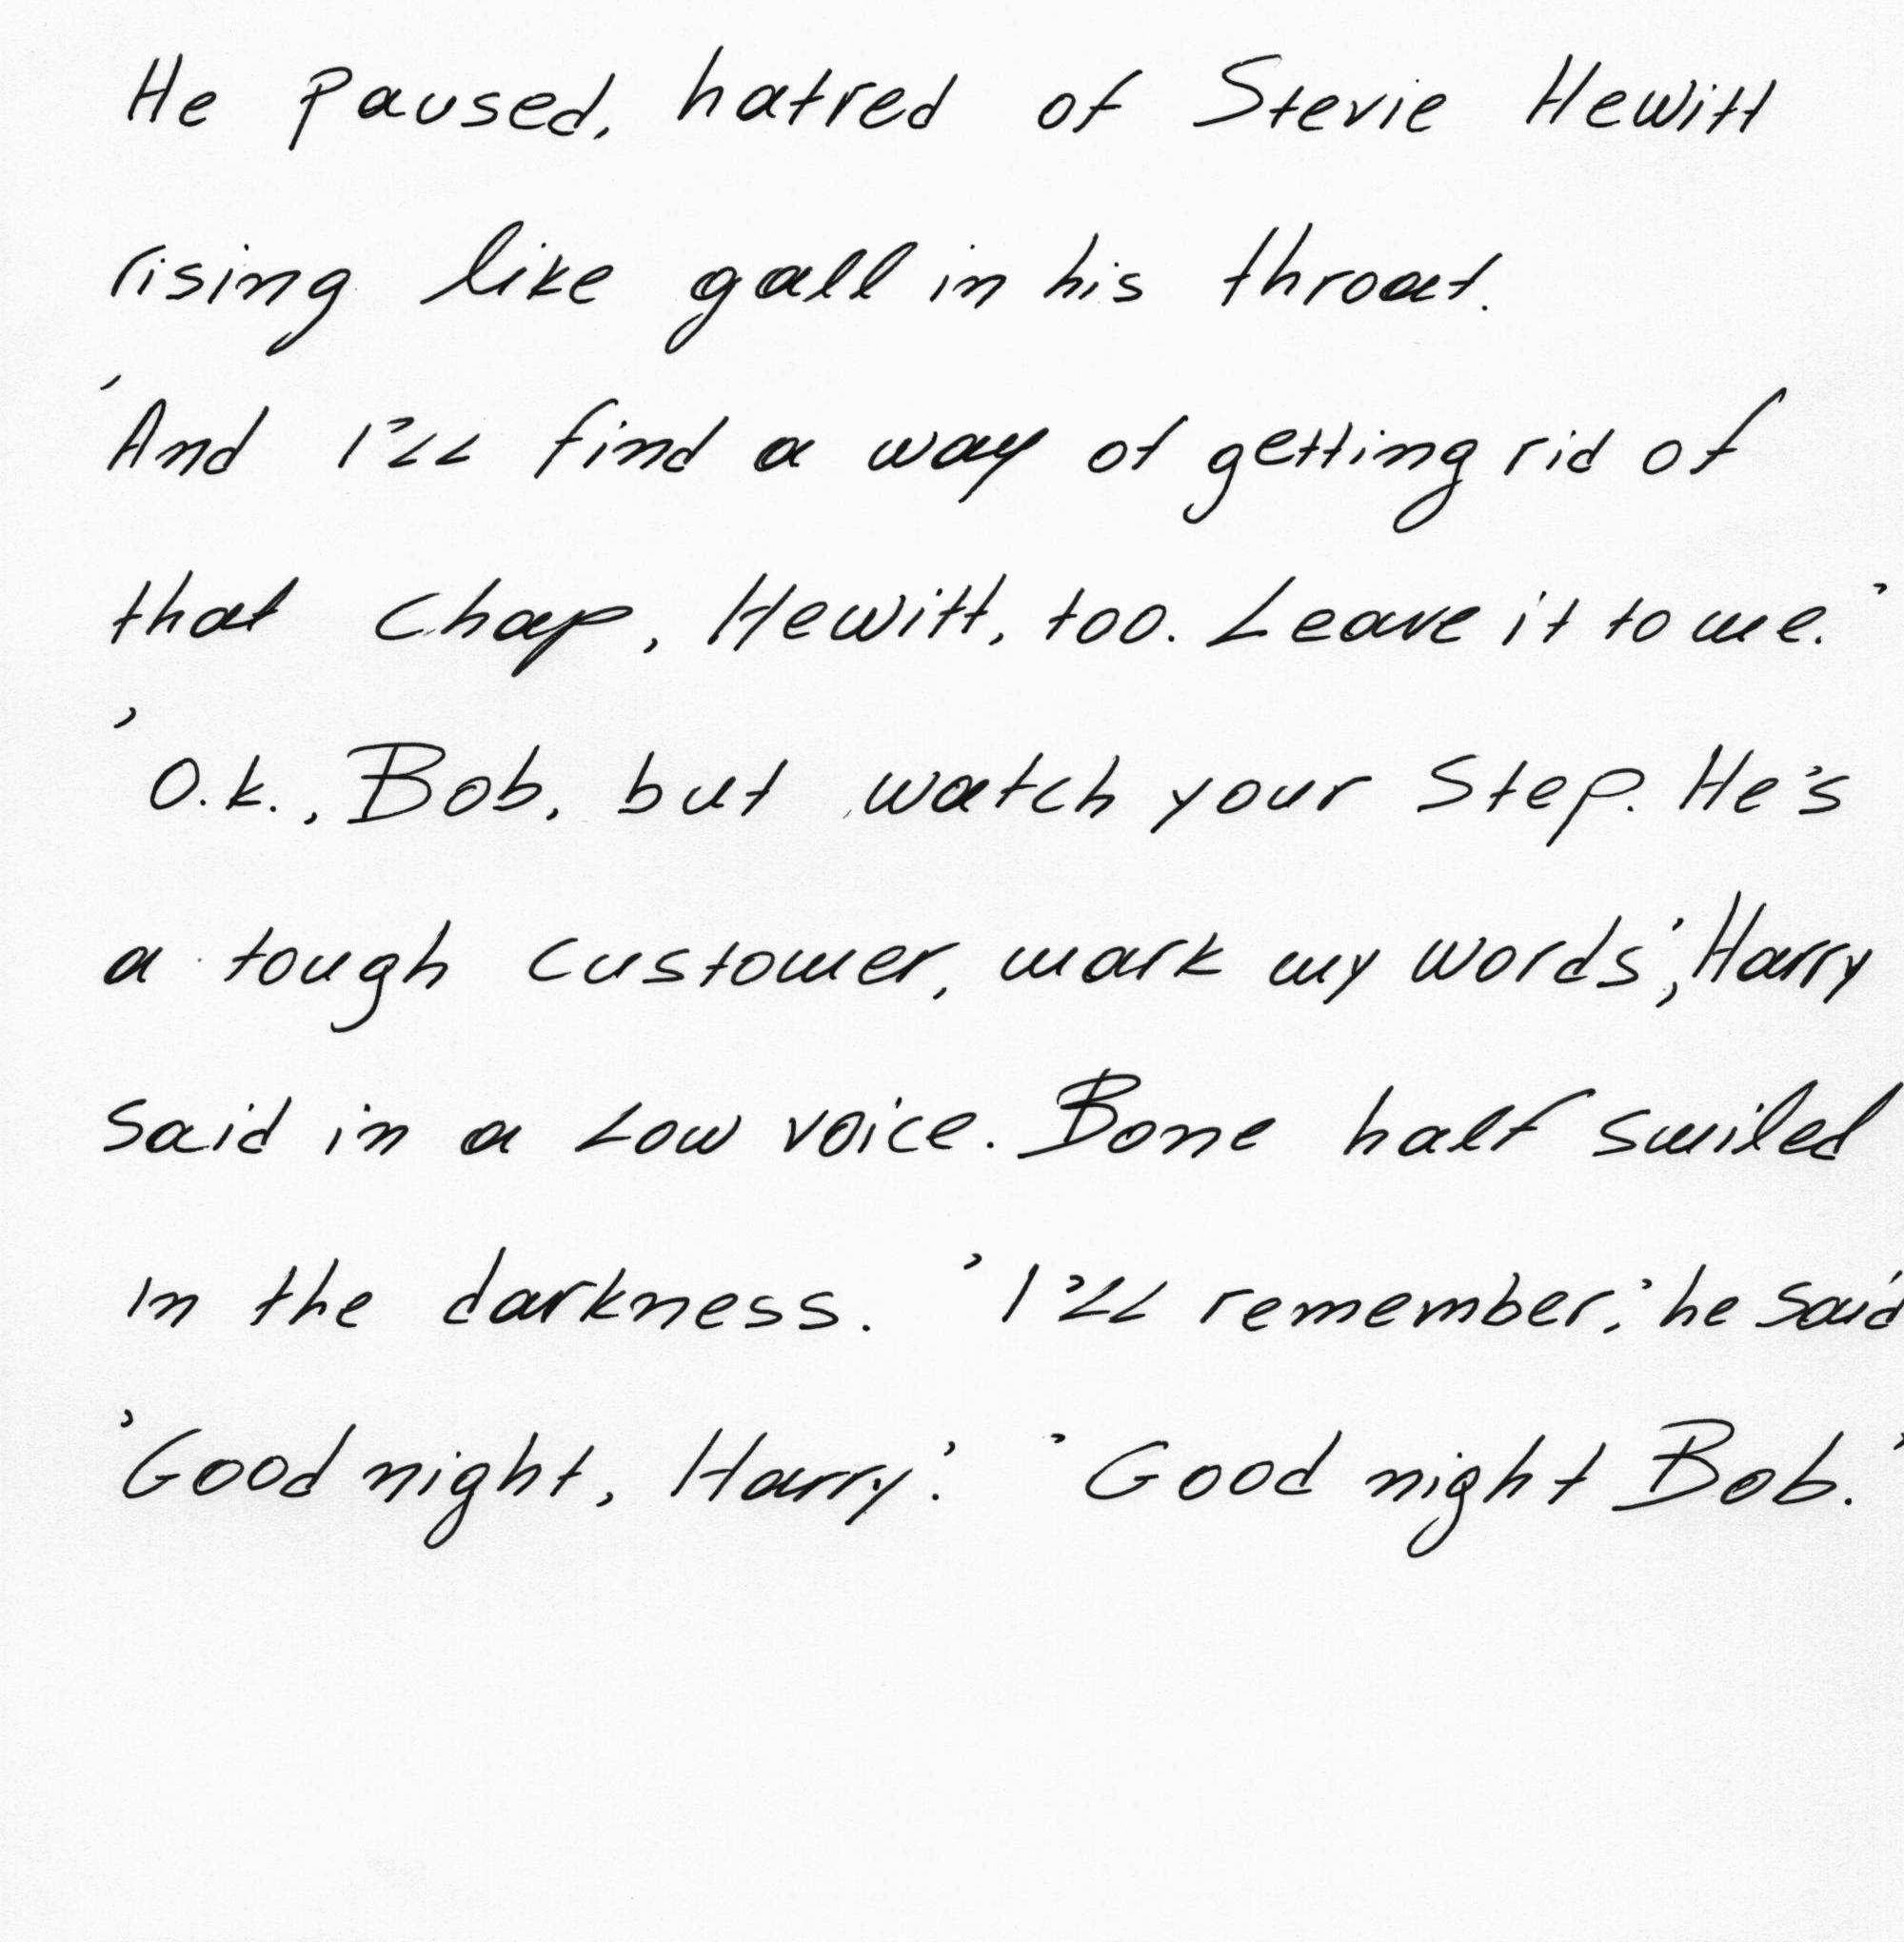 He paused, hatred of Stevie Hewitt
rising like gall in his throat.
'And I'll find a way of getting rid of
that chap, Hewitt, too. Leave it to me.'
'O.k., Bob, but watch your step. He's
a tough customer, mark my words', Harry
said in a low voice. Bone half smiled
in the darkness. 'I'll remember,' he said
'Good night, Harry.' 'Good night Bob.'